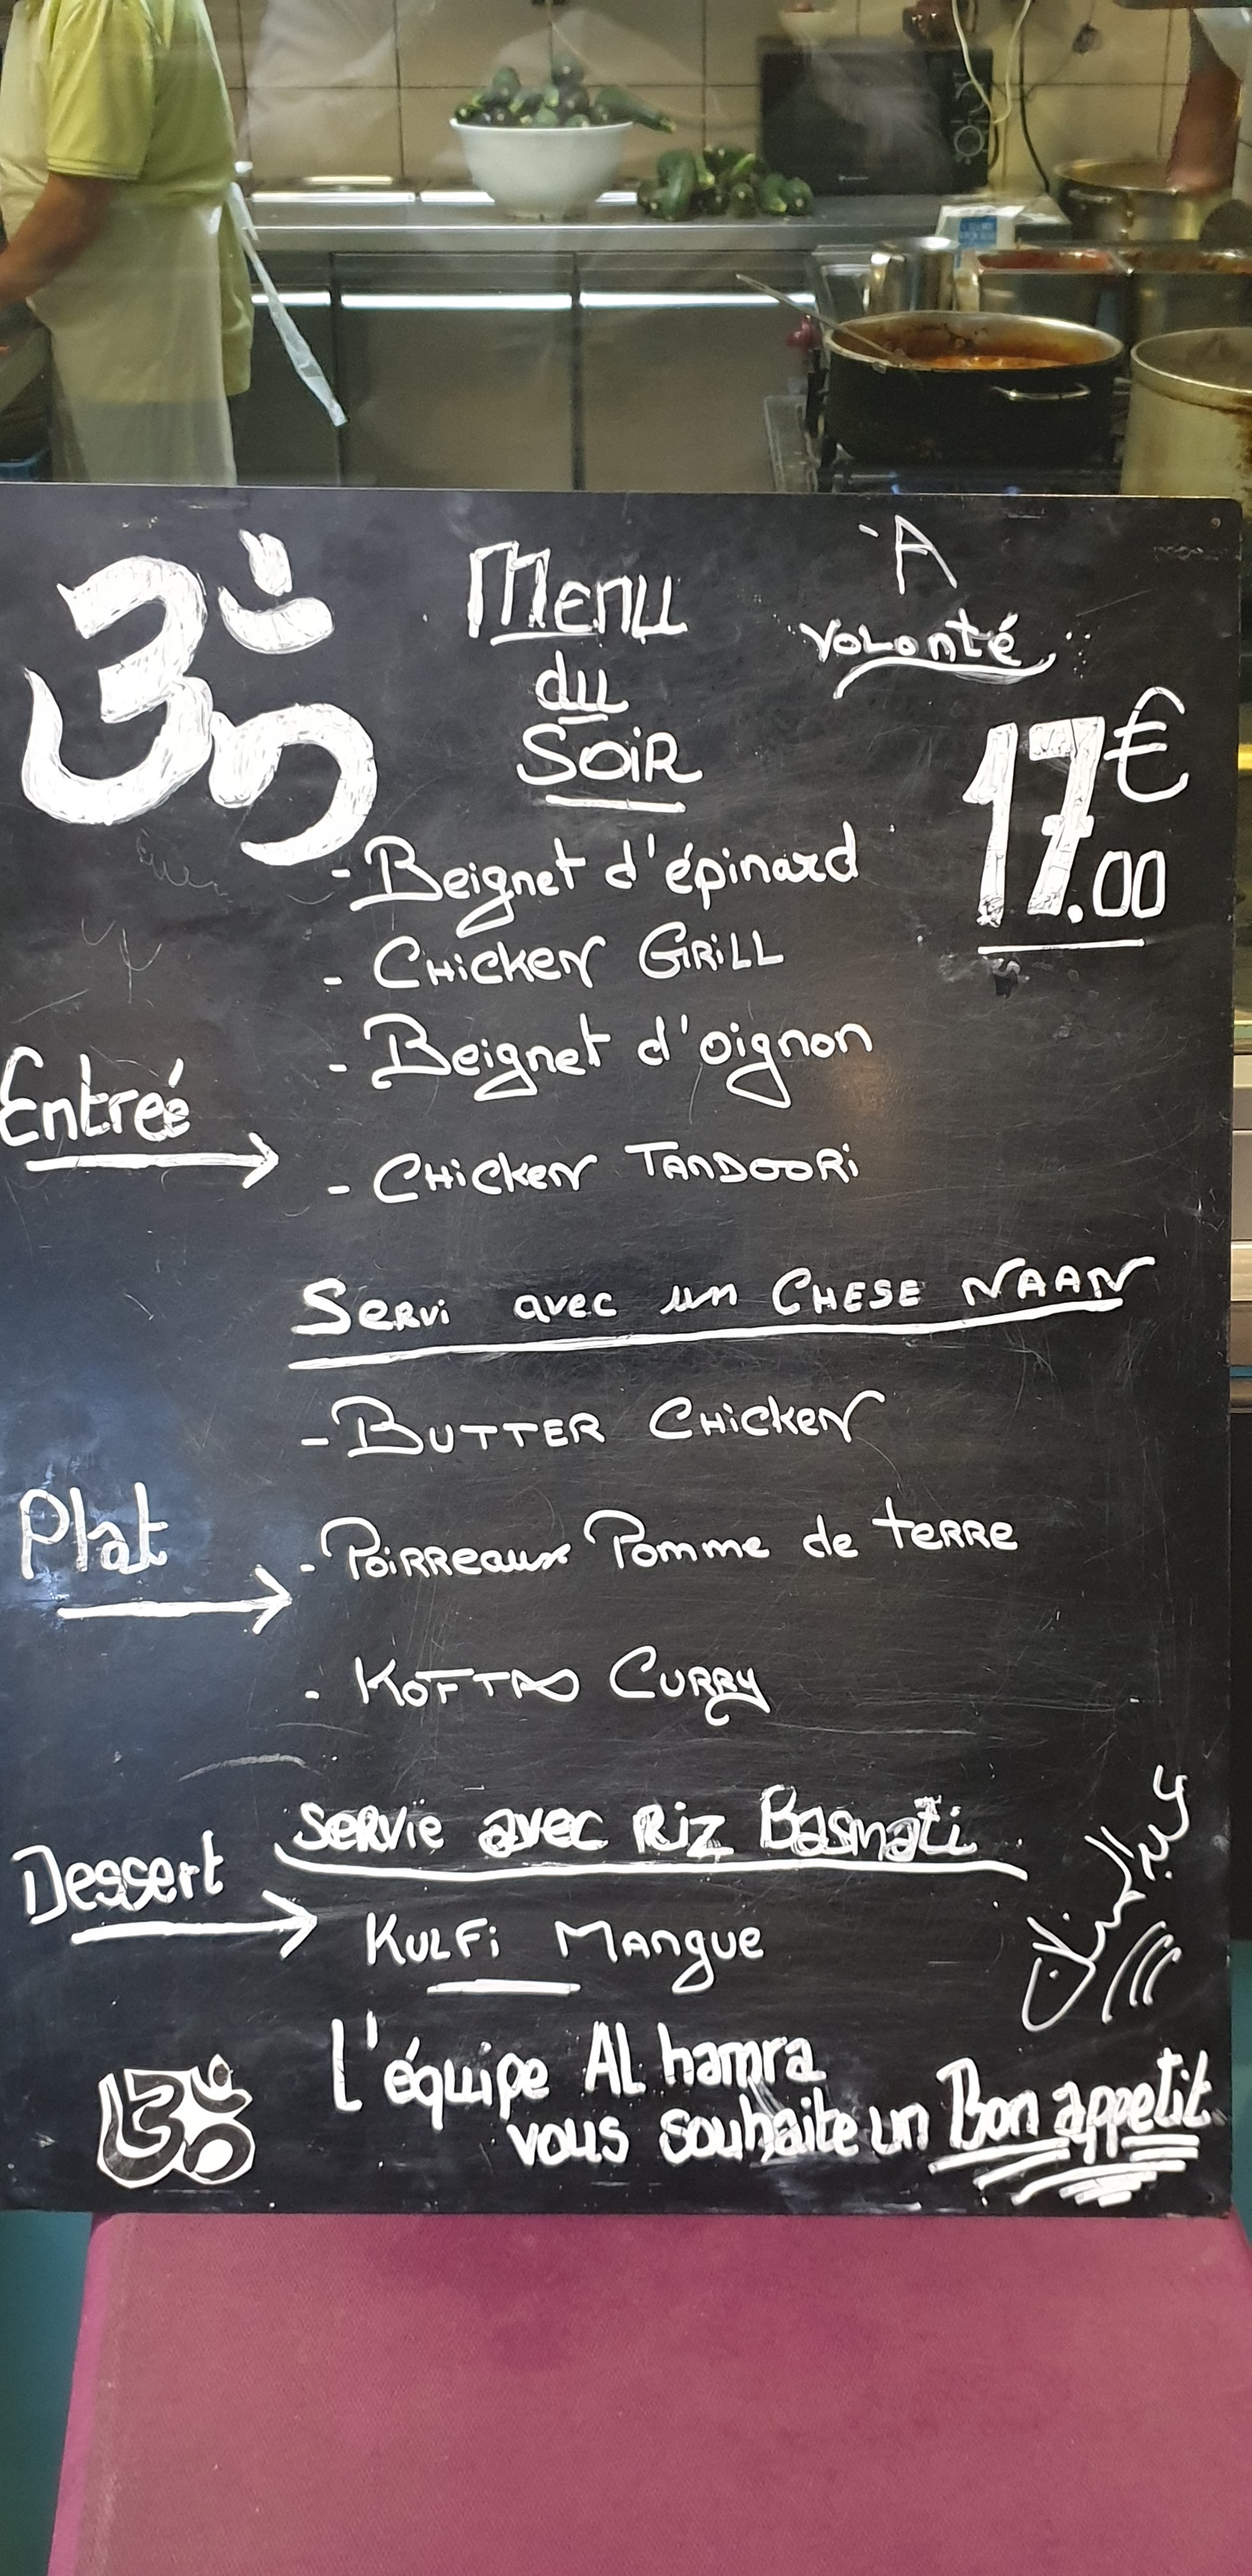 ॐ
Menu
du
Soir
À
volonté
17€
.00
- Beignet d'épinard
- Chicken Grill
- Beignet d'oignon
Entreé
- Chicken Tandoori
Servi avec un Chese NAAN
- Butter Chicken
Plat
- Poirreaux Pomme de terre
- Kofta Curry
servie avec Riz Basmati
Dessert
Kulfi Mangue
L'équipe Al hamra
vous souhaite un Bon appetit
ॐ